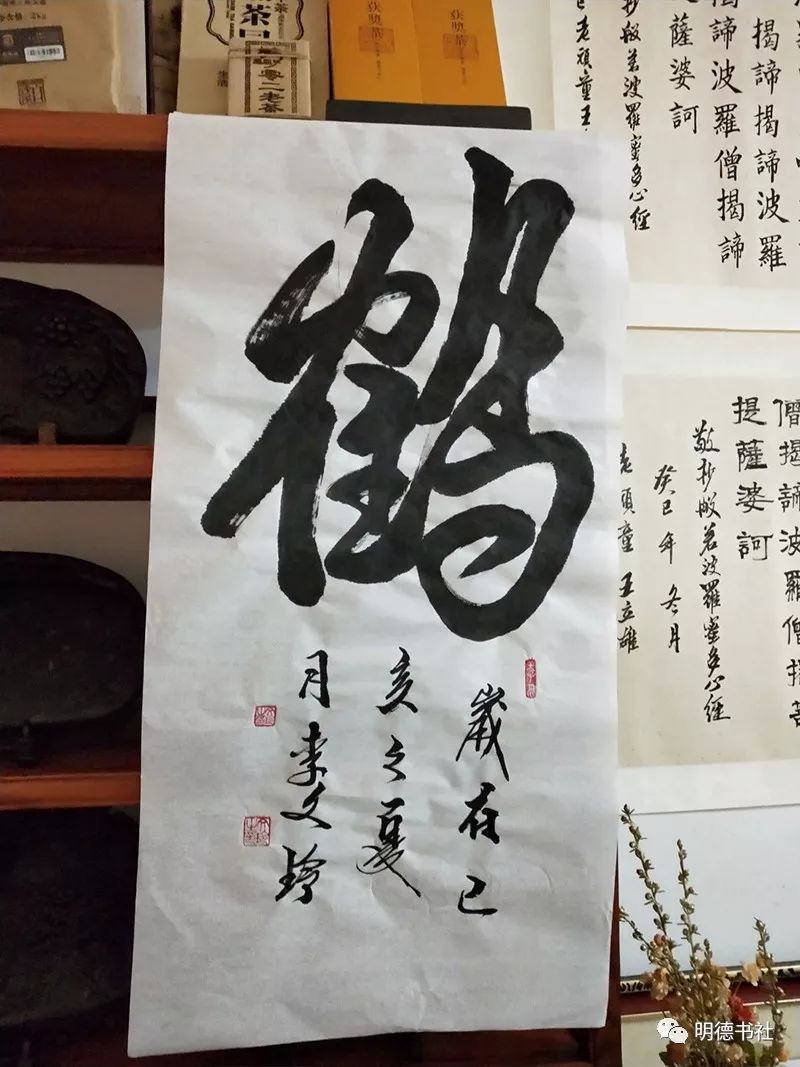 鹤
歲在己
亥之夏
月李文玲
茶口
零二老茶
张獎茶
张獎茶
揭諦揭諦波羅
揭諦波羅僧揭諦
薩婆訶
抄般若波羅蜜多心經
老頑童王
僧揭諦波羅僧揭菩
提薩婆訶
敬抄般若波羅蜜多心經
癸巳年冬月
老頑童王立雄
明德书社